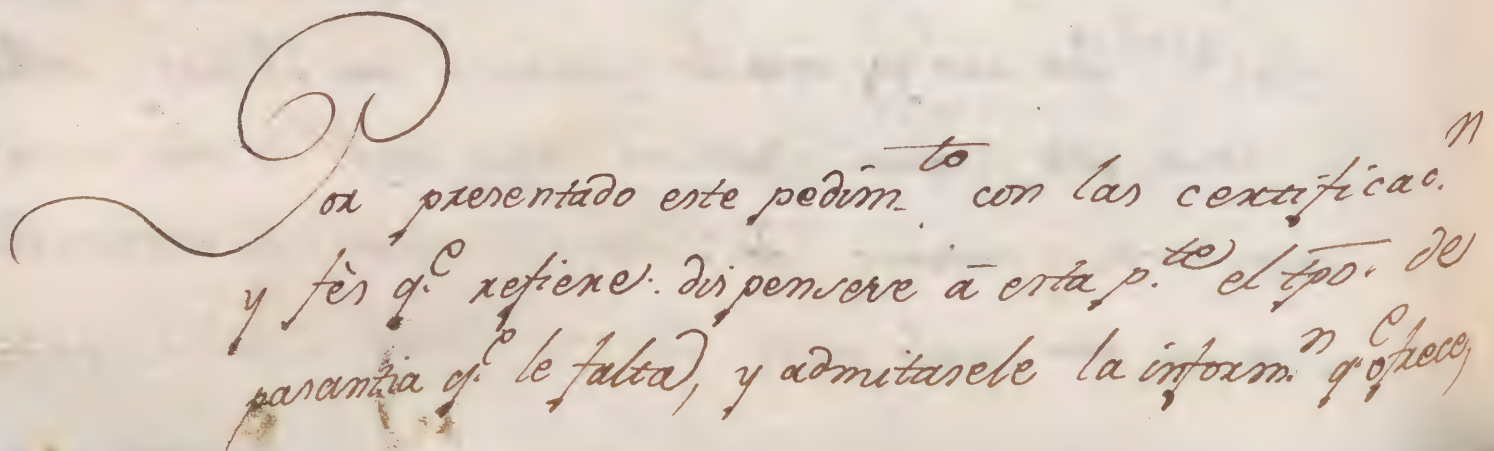 Por presentado este pedim.to con las certificac.n
y fès q.e refiere. dispensese à esta p.te el tpo. de
pasantia q.e le falta, y admitasele la inform.n q.e ofrece,